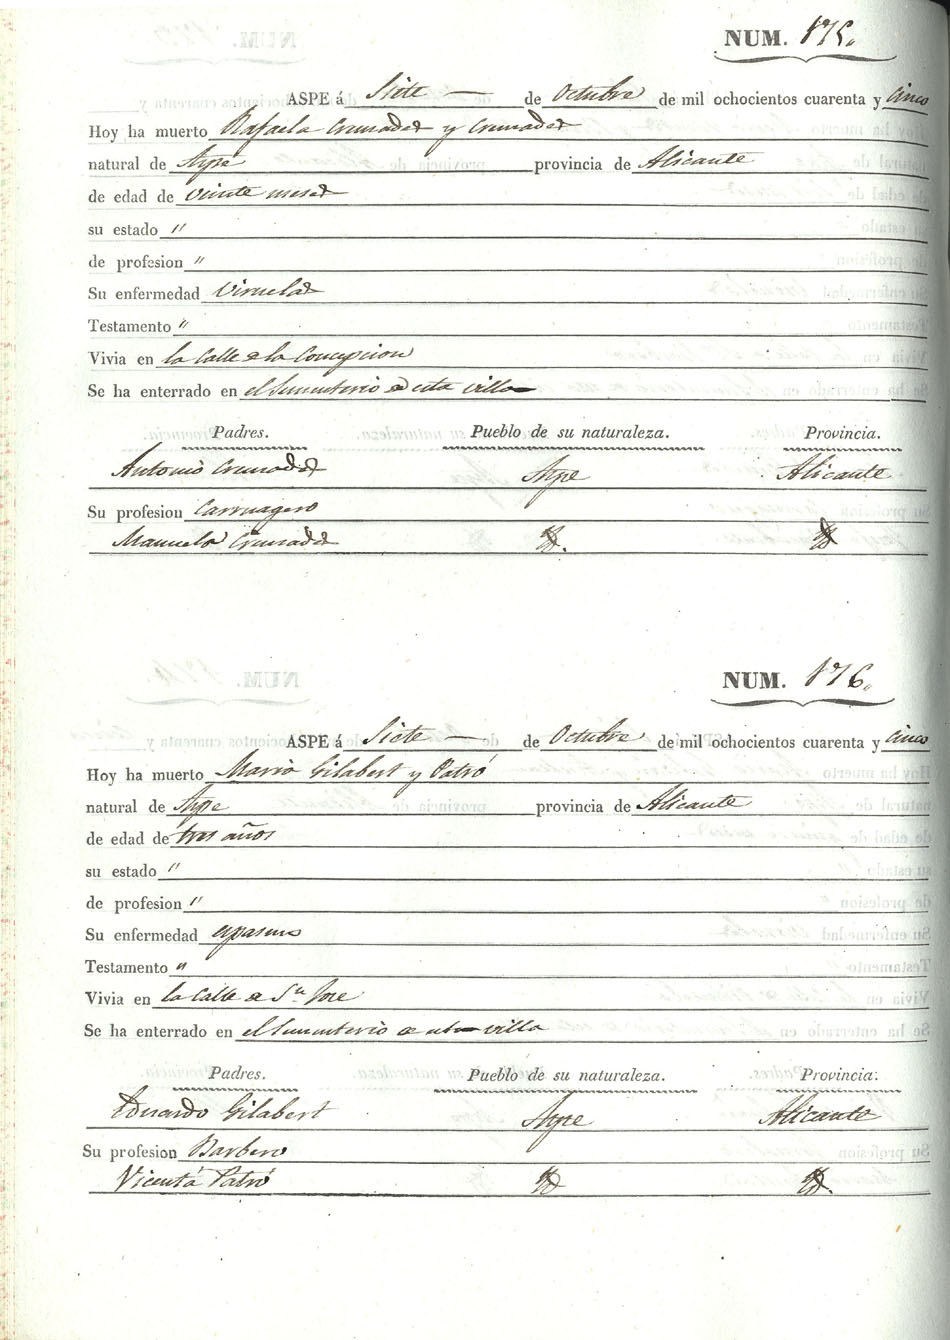 NUM. 175.
ASPE á Siete — de Octubre de mil ochocientos cuarenta y cinco
Hoy ha muerto Rafaela Cremades y Cremades
natural de Aspe provincia de Alicante
de edad de veinte meses
su estado "
de profesion "
Su enfermedad Viruelas
Testamento "
Vivia en la Calle de la Concepcion
Se ha enterrado en el Sementerio de esta villa
Padres. Pueblo de su naturaleza. Provincia.
Antonio Cremades Aspe Alicante
Su profesion Carruagero
Manuela Cremades Yd. Yd
NUM. 176.
ASPE á Siete — de Octubre de mil ochocientos cuarenta y cinco
Hoy ha muerto Maria Gilabert y Patró
natural de Aspe provincia de Alicante
de edad de tres años
su estado "
de profesion "
Su enfermedad espasmo
Testamento "
Vivia en la Calle de Sn Jose
Se ha enterrado en el Sementerio de esta villa
Padres. Pueblo de su naturaleza. Provincia.
Eduardo Gilabert Aspe Alicante
Su profesion Barbero
Vicenta Patró Yd Yd.